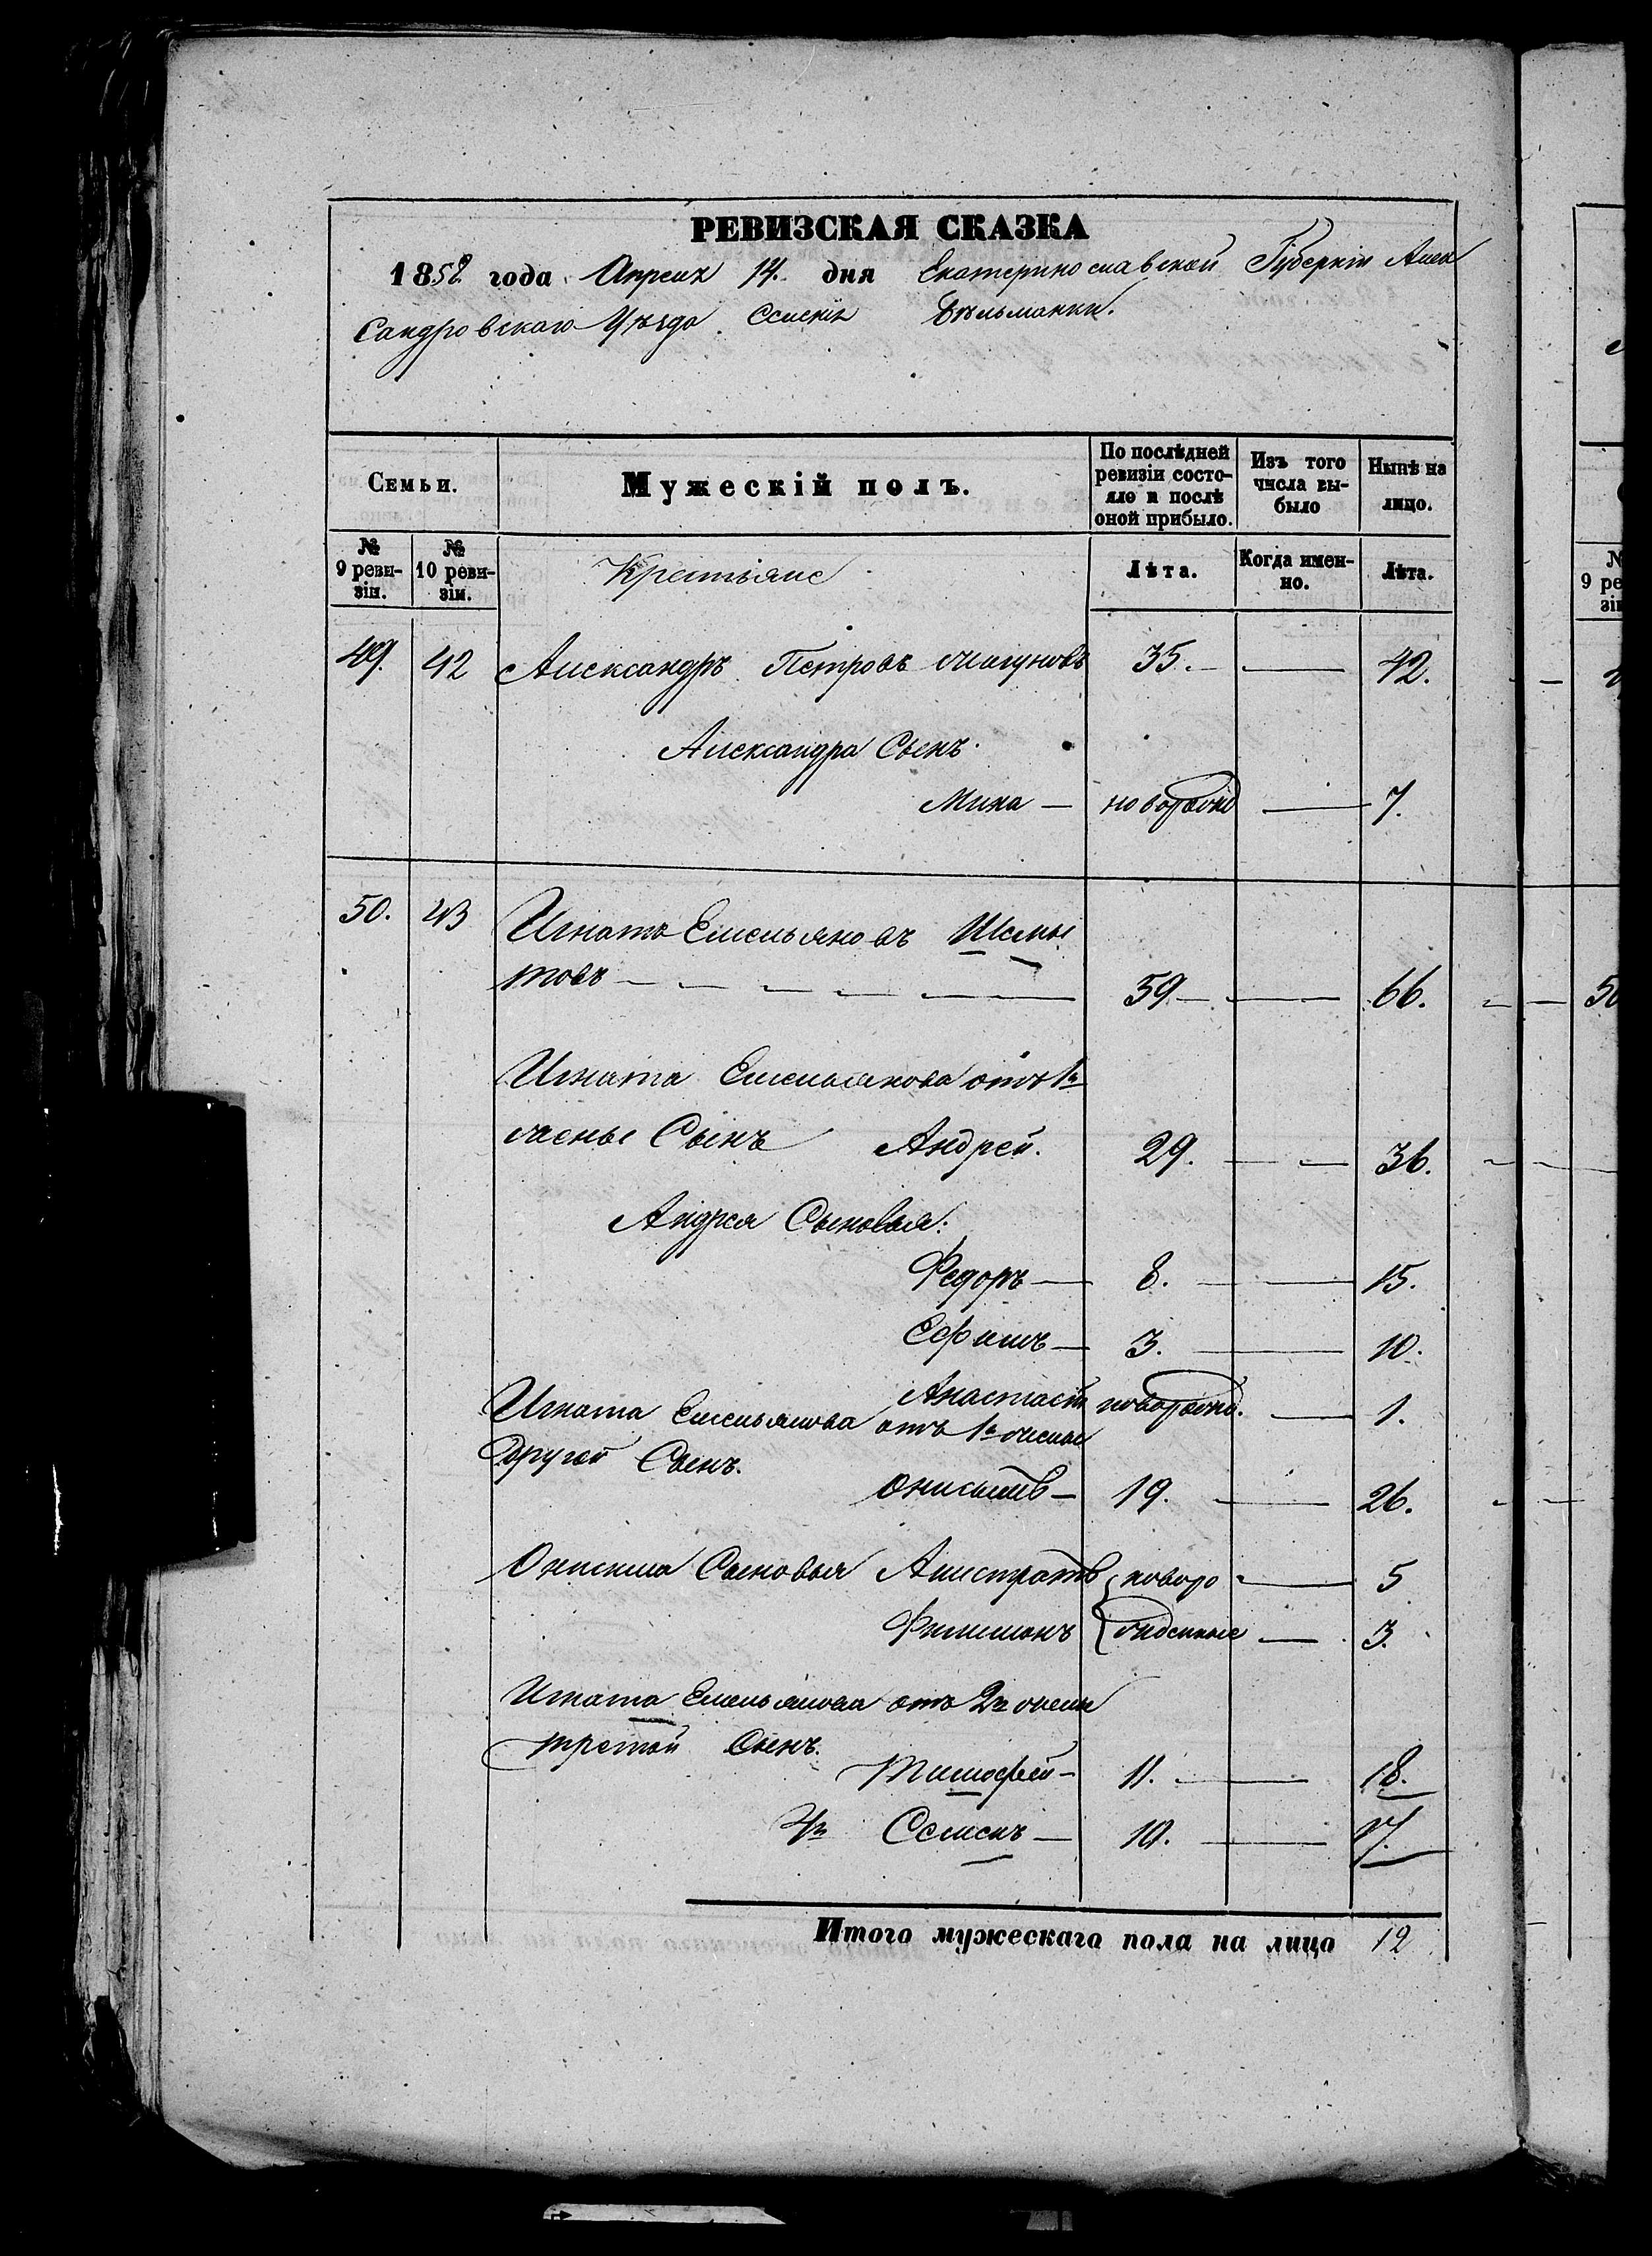 РЕВИЗСКАЯ СКАЗКА
1858 года Апреля 14. дня Екатеринославской Губерніи Алек
сандровскаго Уѣзда Селенія Бѣльманки.
Семьи. Мужескій полъ. По послѣдней ревизіи состояло и послѣ оной прибыло. Изъ того числа выбыло Нынѣ на лицо.
№ 9 ревизіи. № 10 ревизіи. Крестьяне Лѣта. Когда именно. Лѣта.
49. 42 Александръ Петровъ 35. 42.
Александра Сынъ
Мина новорожд 7.
50. 43 Игнатъ Емельяновъ Шелы
товъ 59. 66.
Игната Емельянова отъ 1й
жены Сынъ Андрей. 29. 36.
Андрея Сыновья:
Федоръ 8. 15.
Ефимъ 3. 10.
Анастасій новорожд. 1.
Игната Емельянова отъ 1й жены
другой Сынъ.
Онисимъ 19. 26.
Онисима Сыновья Алистратъ новоро 5
Филимонъ жденные 3.
Игната Емельянова отъ 2й жены
третій Сынъ.
Тимофей 11. 18.
4й Семенъ 10. 17.
Итого мужескаго пола на лицо 12
№
9 ре
зі
50